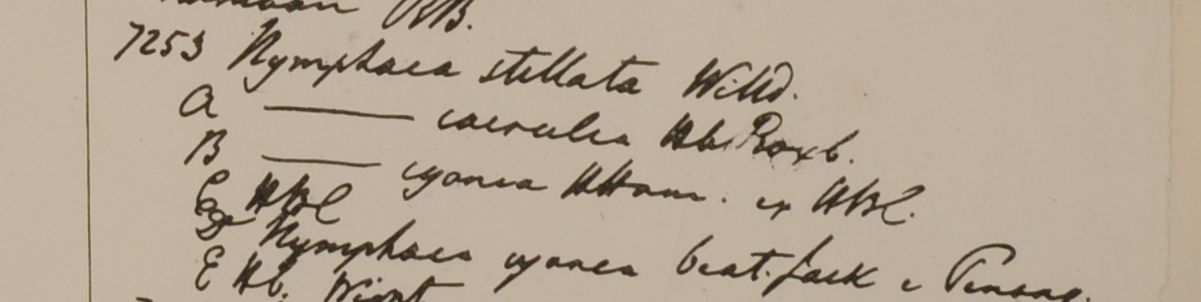 RB.
7253 Nymphaea stellata Willd.
A ——— caerulea Hb. Roxb.
B ——— cyanea HHam. ex HBC.
C HBC
D Nymphaea cyanea beat. Jack e Penang.
E Hb. Wight